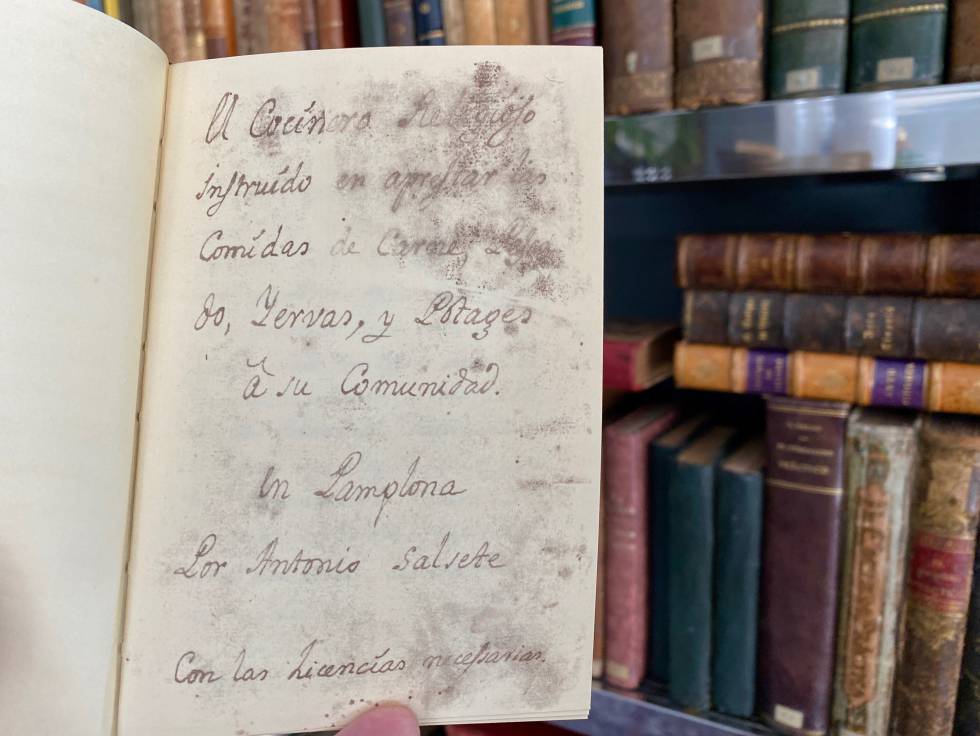 El Cocinero Religioso
instruído en aprestar las
Comídas de Carne, Pesca-
do, Yervas, y Potages
à su Comunidad.
En Pamplona
Por Antonio Salsete
Con las Licencías necessarias.